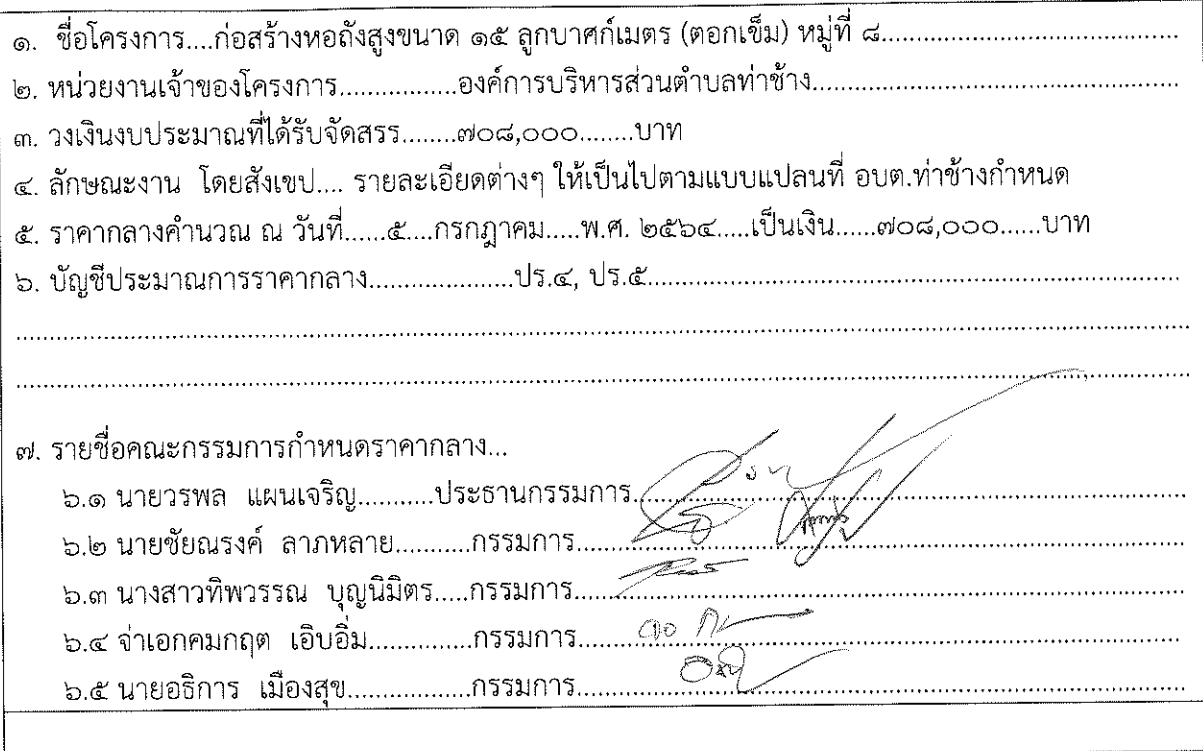 ๑. ชื่อโครงการ....ก่อสร้างหอถังสูงขนาด ๑๕ ลูกบาศก์เมตร (ตอกเข็ม) หมู่ที่ ๘..........................................
๒. หน่วยงานเจ้าของโครงการ.................องค์การบริหารส่วนตำบลท่าช้าง......................................................
๓. วงเงินงบประมาณที่ได้รับจัดสรร........๗๐๘,๐๐๐........บาท
๔. ลักษณะงาน โดยสังเขป.... รายละเอียดต่างๆ ให้เป็นไปตามแบบแปลนที่ อบต.ท่าช้างกำหนด
๕. ราคากลางคำนวณ ณ วันที่......๕....กรกฎาคม.....พ.ศ. ๒๕๖๔.....เป็นเงิน......๗๐๘,๐๐๐......บาท
๖. บัญชีประมาณการราคากลาง.....................ปร.๔, ปร.๕..............................................................................
๗. รายชื่อคณะกรรมการกำหนดราคากลาง...
๖.๑ นายวรพล แผนเจริญ...........ประธานกรรมการ
๖.๒ นายชัยณรงค์ ลาภหลาย...........กรรมการ
๖.๓ นางสาวทิพวรรณ บุญนิมิตร.....กรรมการ
๖.๔ จ่าเอกคมกฤต เอิบอิ่ม...............กรรมการ
๖.๕ นายอธิการ เมืองสุข.................กรรมการ